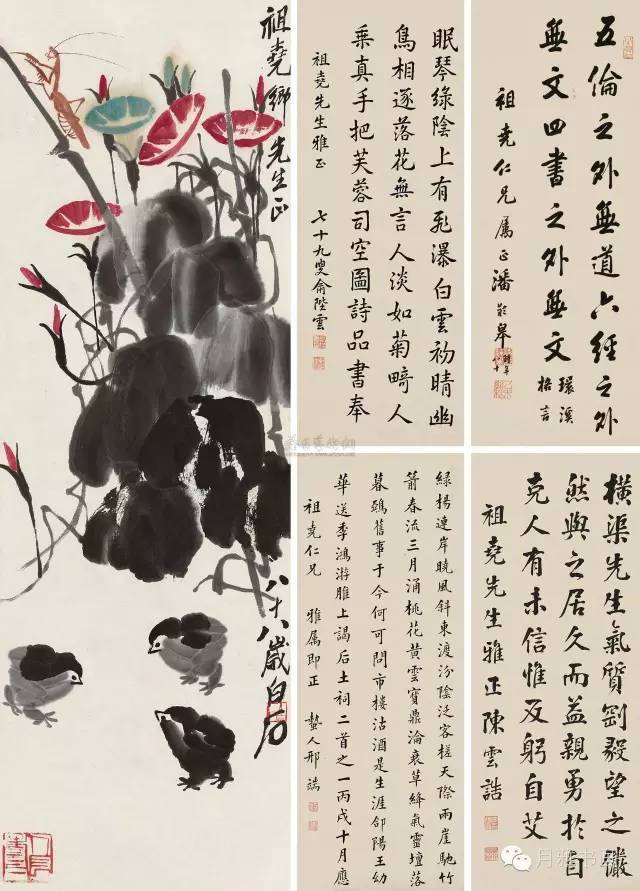 祖堯鄉先生正
八十八歲白石
五倫之外無道六經之外
無文四書之外無文
環溪
格言
祖堯仁兄屬正潘齡皋
時年
八十
眠琴綠陰上有飛瀑白雲初晴幽
鳥相逐落花無言人淡如菊畸人
乘真手把芙蓉司空圖詩品書奉
祖堯先生雅正
七十九叟俞陛雲
橫渠先生氣質剛毅望之儼
然與之居久而益親勇於自
克人有未信惟反躬自艾
祖堯先生雅正陳雲誥
綠楊連岸曉風斜東渡汾陰泛客槎天際兩崖馳竹
箭春流三月涌桃花黃雲寶鼎淪衰草絳氣靈壇落
暮鴉舊事于今何可問市樓沽酒是生涯郃陽王幼
華送季鴻游脽上謁后土祠二首之一丙戌十月應
祖堯仁兄 雅屬即正 蟄人邢端
月雅书画